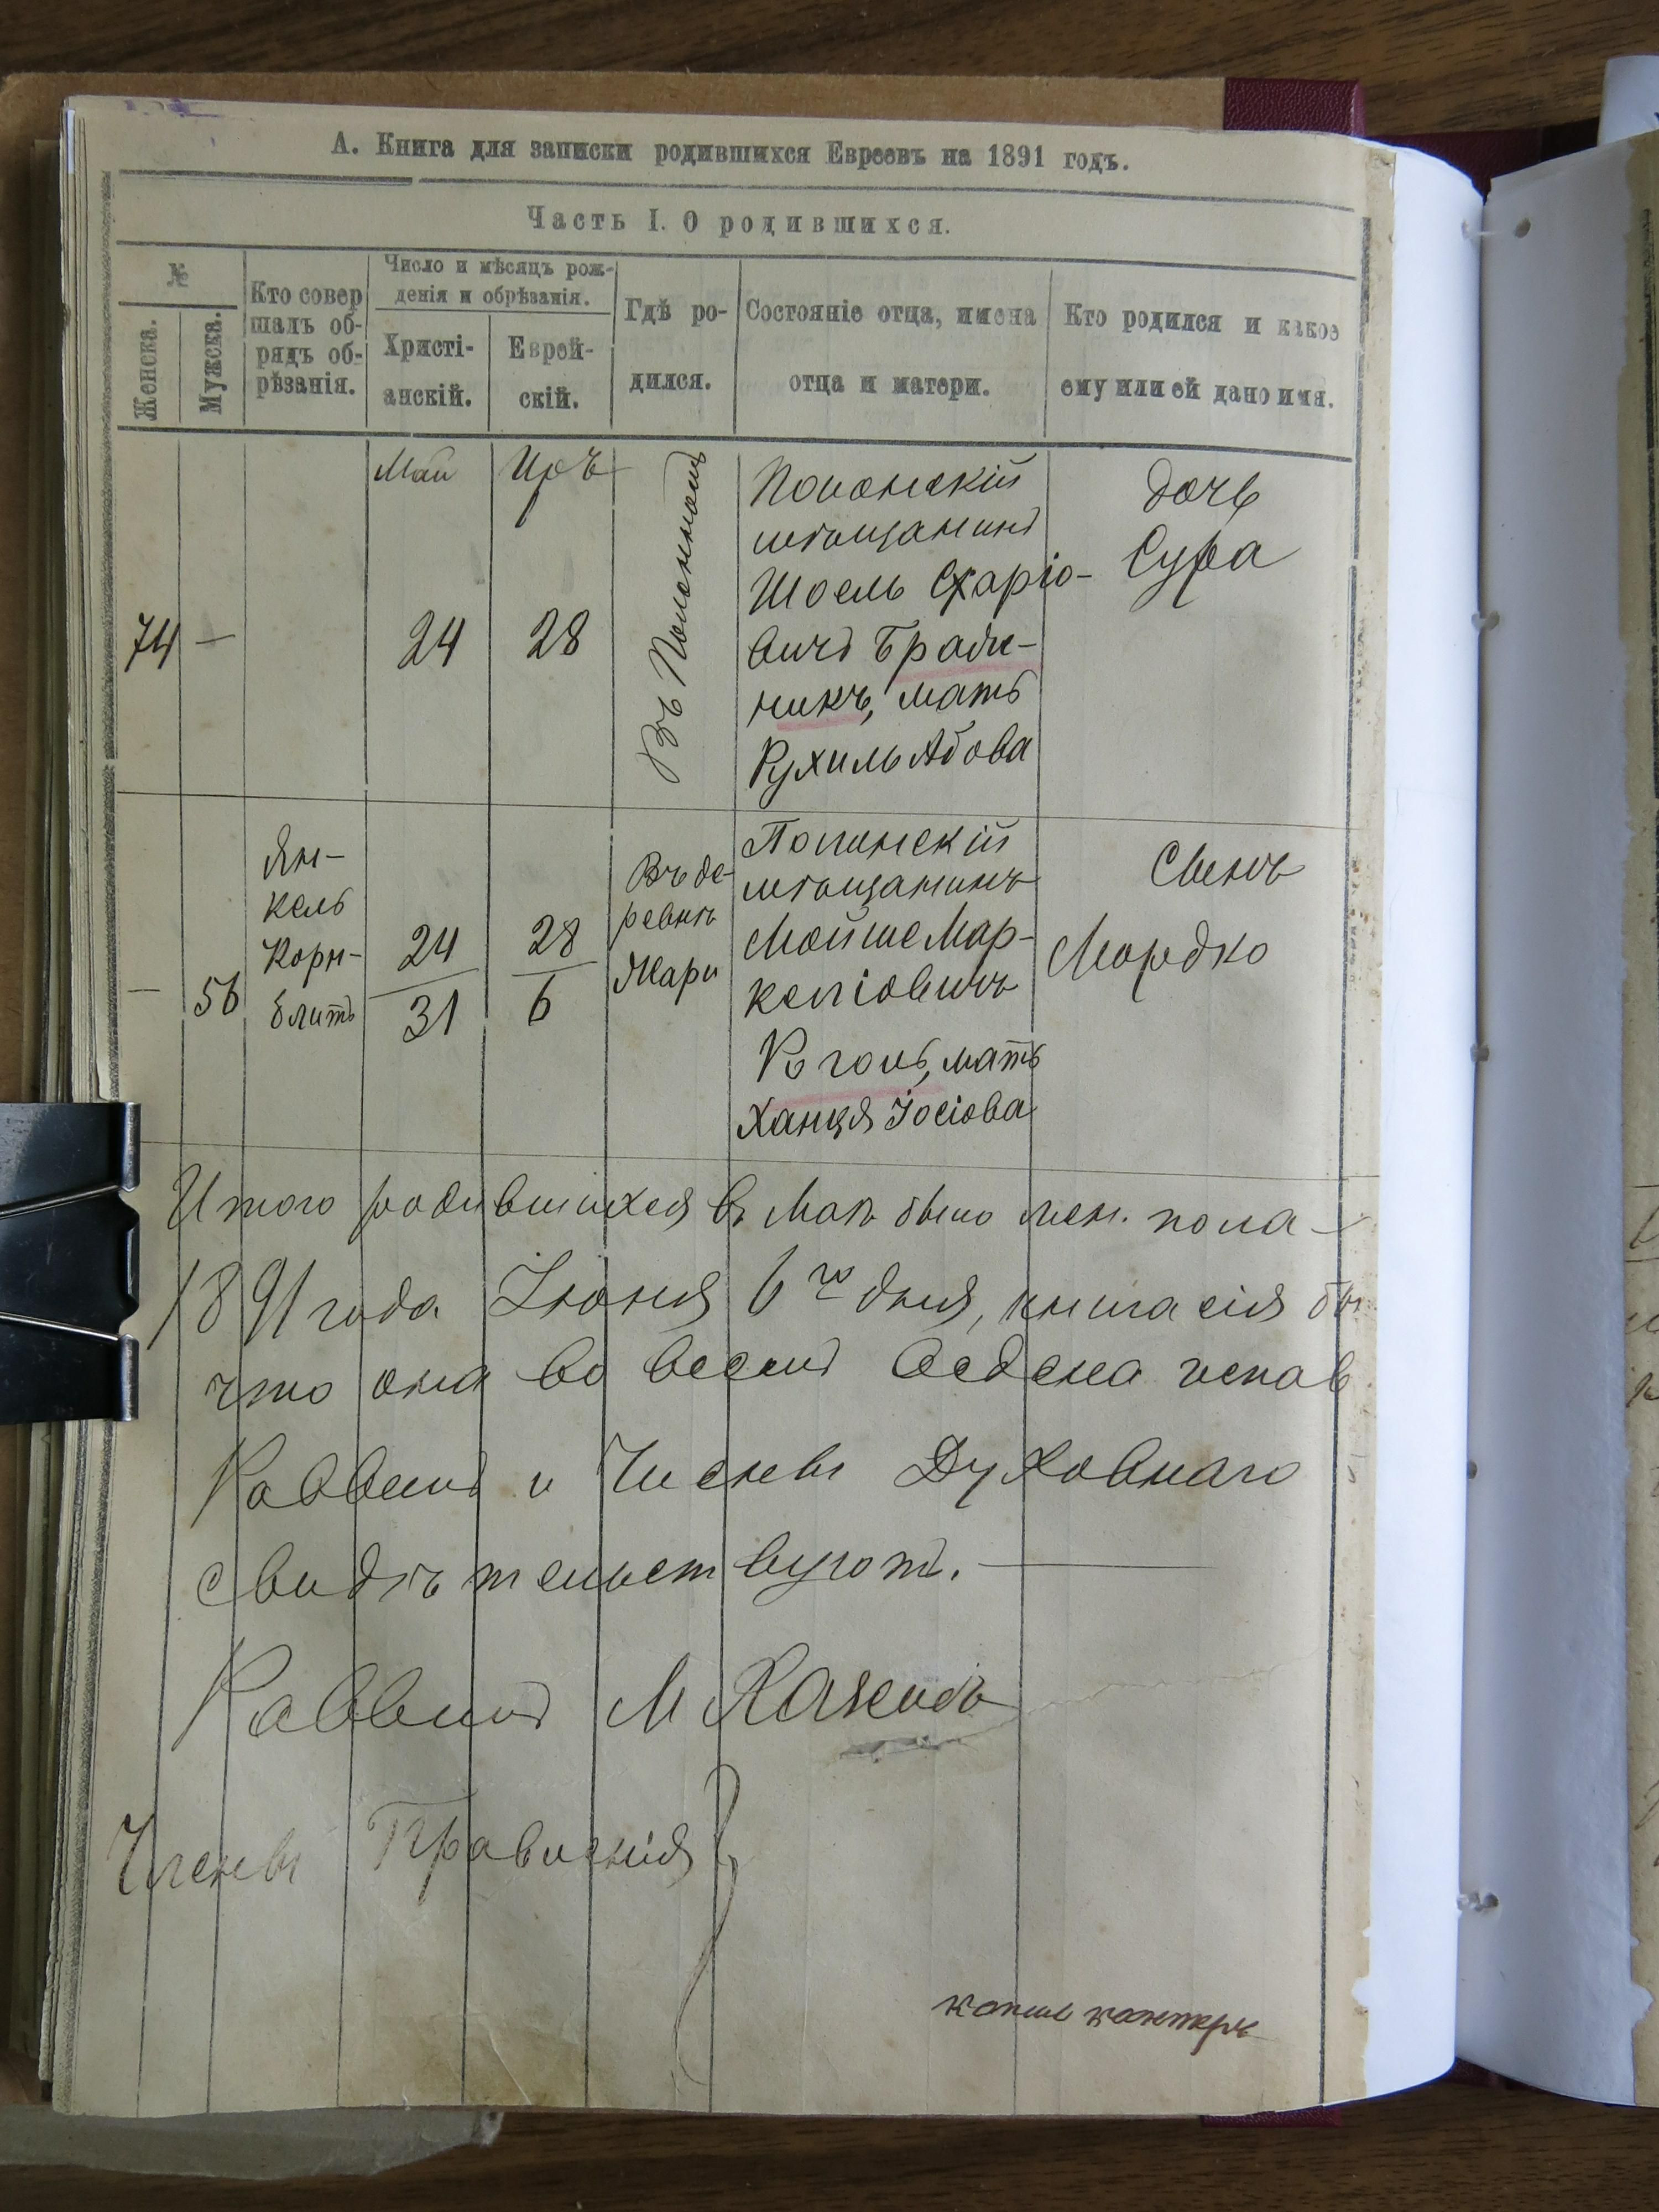 А. Книга для записки родившихся Евреевъ на 1891 годъ.
Часть I. О родившихся.
№
Женска.
Мужска.
Кто совер
шалъ об-
рядъ об-
рѣзанія.
Число и мѣсяцъ рож-
денія и обрѣзанія.
Христі-
анскій.
Еврей-
скій.
Гдѣ ро-
дился.
Состояніе отца, имена
отца и матери.
Кто родился и какое
ему или ей дано имя.
74
—
Май
24
Иръ
28
Въ Полонномъ
Полонскій
мѣщанинъ
Шоель
вичъ Брали-
никъ, мать
Рухиль Абова
дочь
Сура
—
56
Ян-
кель
Корн-
блитъ
24
31
28
6
Въ де-
ревнѣ
Полонскій
мѣщанинъ
Мойше Мар-
келіовичъ
Коголь, мать
Ханця Іосіова
Сынъ
Мордко
Итого родившихся въ Маѣ было жен. пола —
1891 года Іюня 6го дня, книга сія бы
что она во всемъ ведена исправ
Раввинъ и Члены Духовнаго
свидѣтельствуютъ.
Раввинъ М
Члены Правленія